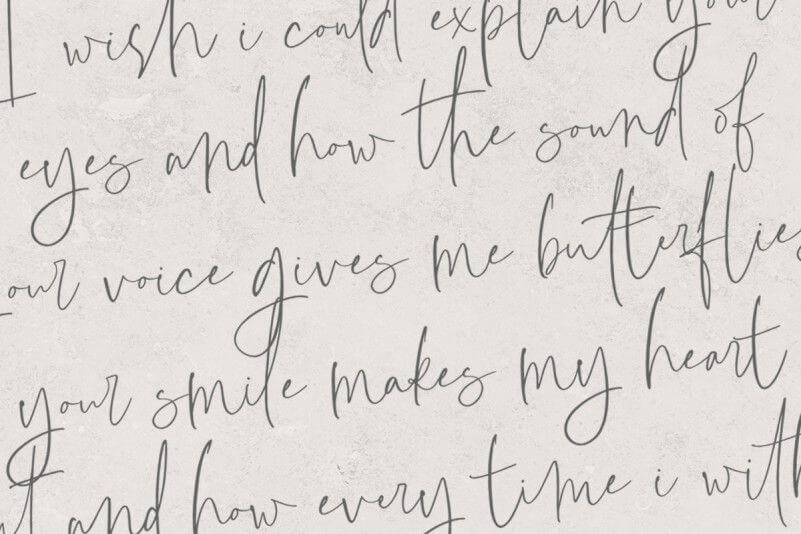 I wish i could explain your
eyes and how the sound of
your voice gives me butterflies
your smile makes my heart
and how every time i with